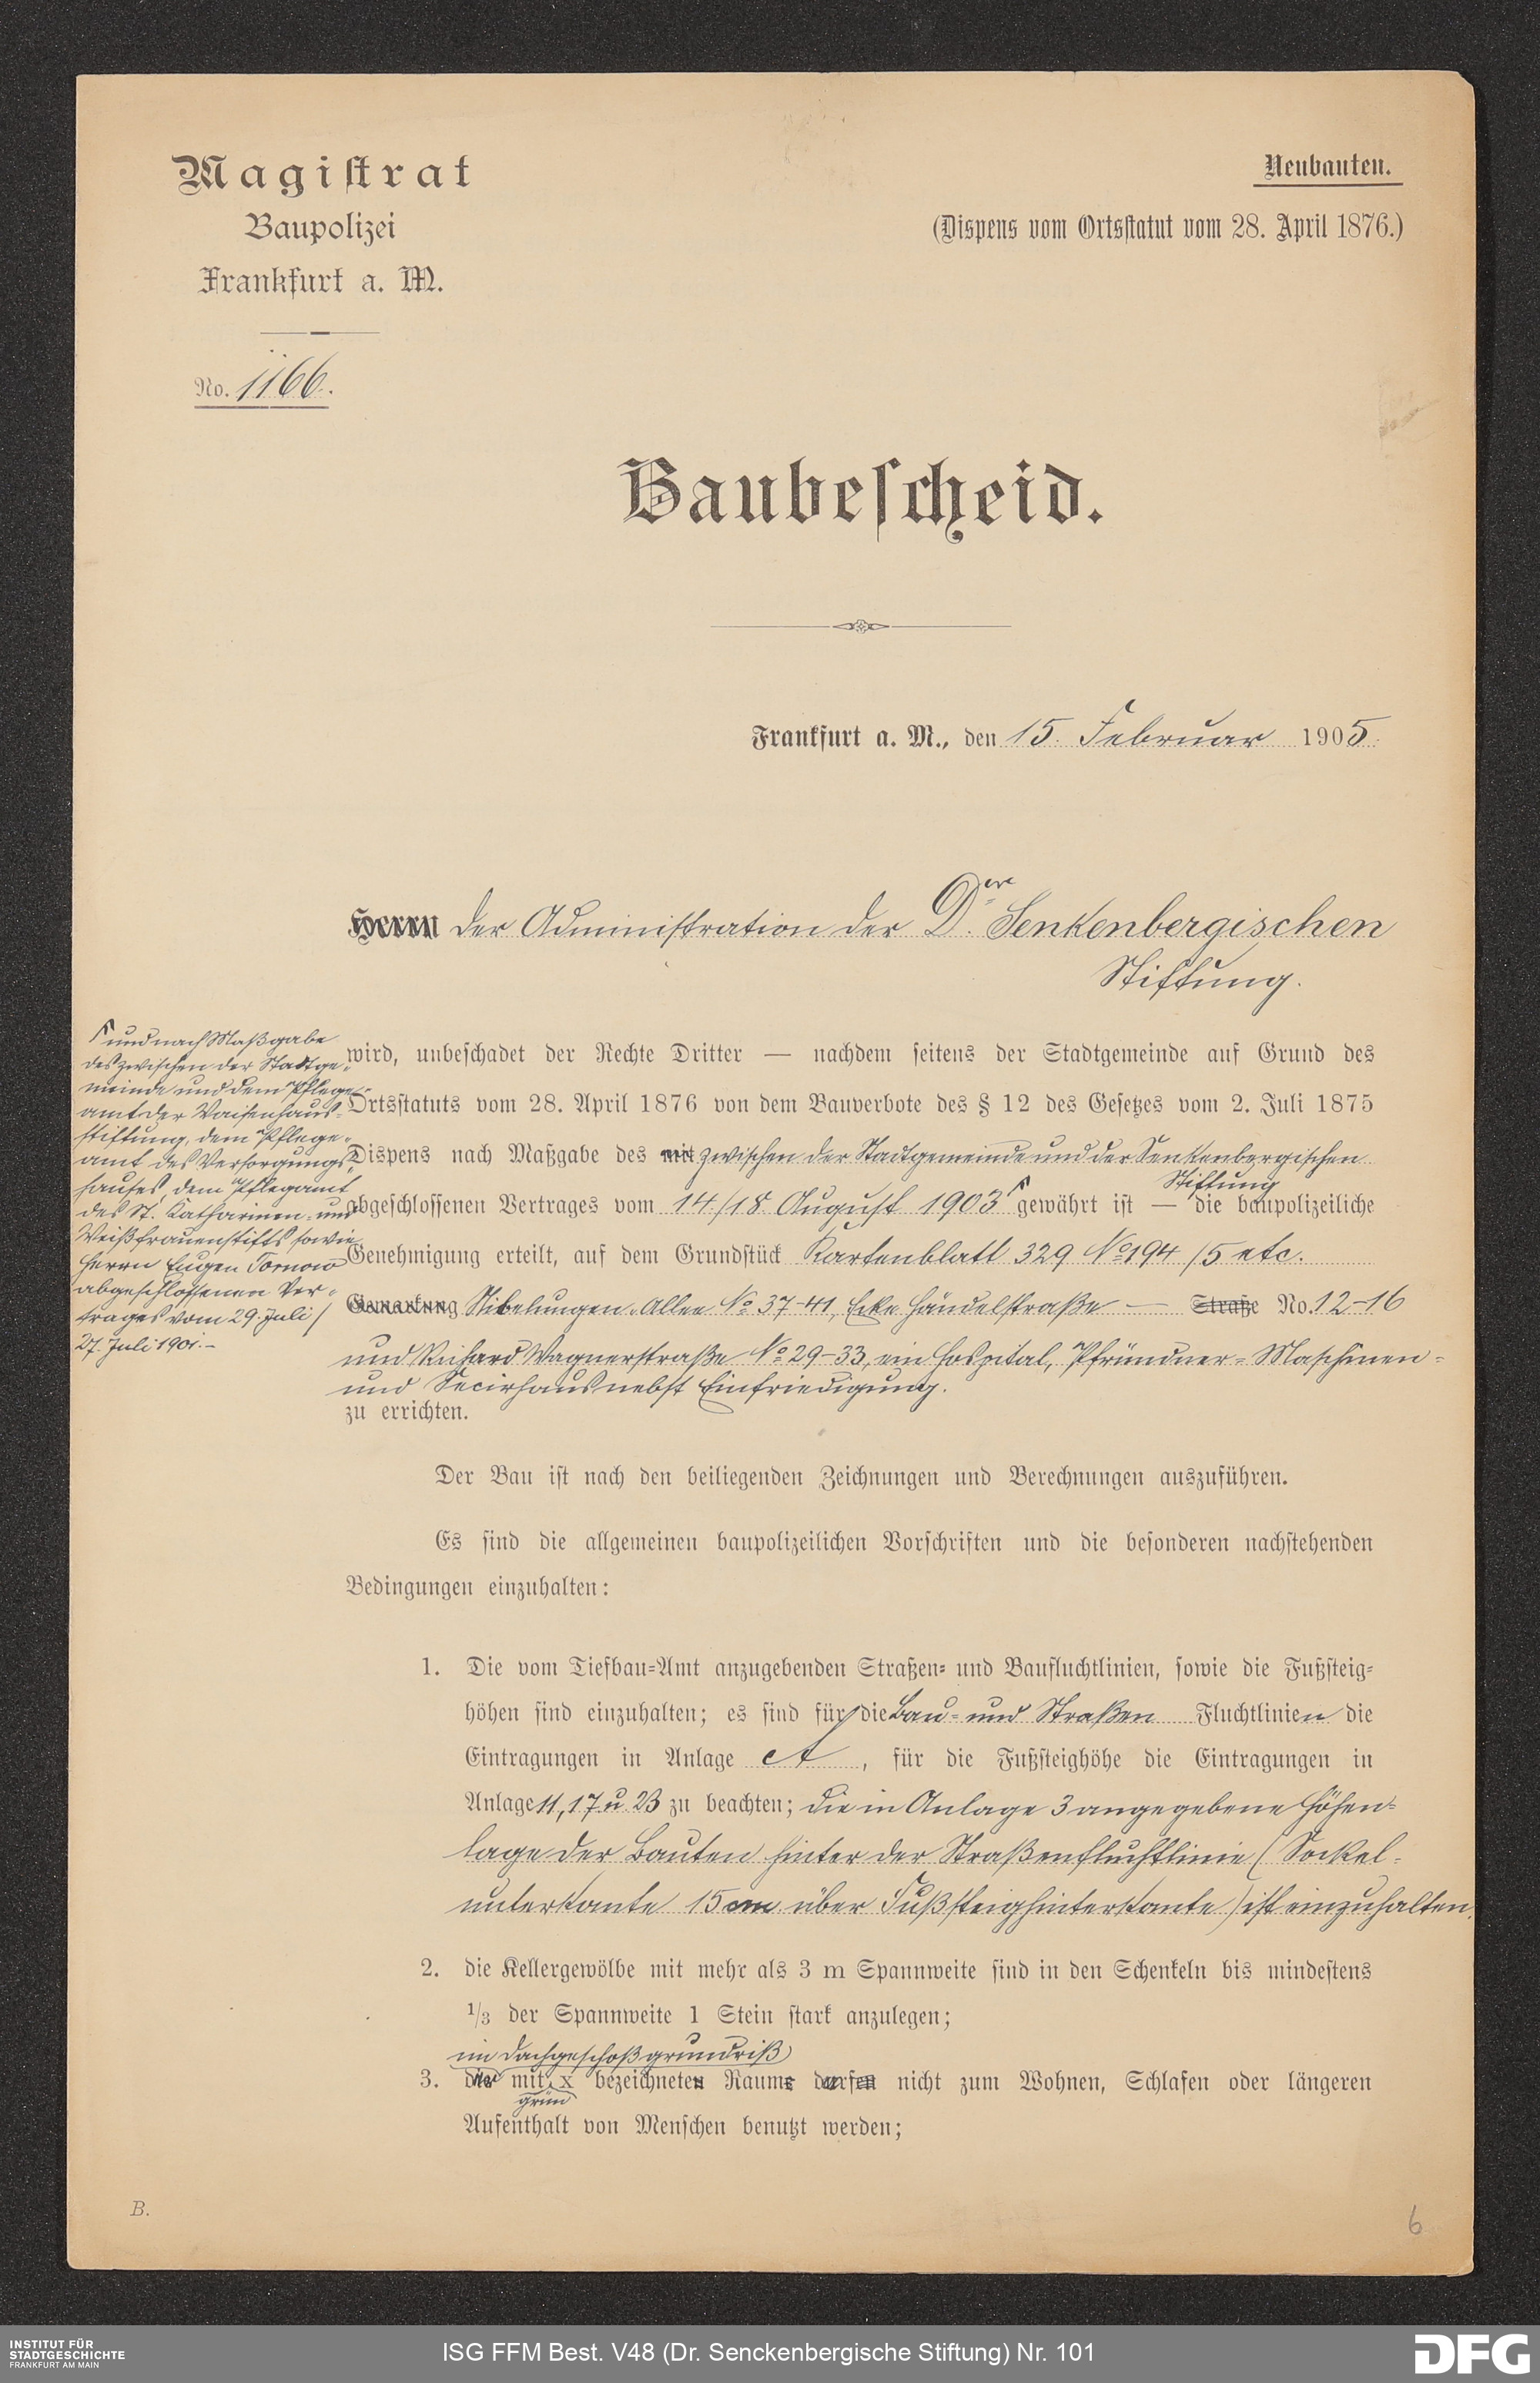 Magistrat
Baupolizei
Frankfurt a. M.
No. 1166.
Neubauten.
(Dispens vom Ortsstatut vom 28. April 1876.)
Baubescheid.
Frankfurt a. M., den 15. Februar 1905.
Herrn der Administration der Dr. Senkenbergischen
Stiftung.
und nach Maßgabe
des zwischen der Stadtge-
meinde und dem Pflege-
amt der Waisenhaus-
stiftung, dem Pflege-
amt des Versorgungs-
hauses, dem Pflegamt
des St. Katharinen- und
Weißfrauenstifts sowie
Herrn Eugen Tornow
abgeschlossenen Ver-
trages vom 29. Juli/
27. Juli 1901.-
wird, unbeschadet der Rechte Dritter — nachdem seitens der Stadtgemeinde auf Grund des
Ortsstatuts vom 28. April 1876 von dem Bauverbote des § 12 des Gesetzes vom 2. Juli 1875
Dispens nach Maßgabe des mit zwischen der Stadtgemeinde und der Senkenbergischen
Stiftung
abgeschlossenen Vertrages vom 14./18. August 1903 gewährt ist — die baupolizeiliche
Genehmigung erteilt, auf dem Grundstück Kartenblatt 329 No 194/5 etc.
Gemarkung Nibelungen-Allee No 37-41, Ecke Händelstraße — Straße No. 12-16
und Richard Wagnerstraße No 29-33, ein Hospital, Pfründner- Maschinen-
und Secirhaus nebst Einfriedigung.
zu errichten.
Der Bau ist nach den beiliegenden Zeichnungen und Berechnungen auszuführen.
Es sind die allgemeinen baupolizeilichen Vorschriften und die besonderen nachstehenden
Bedingungen einzuhalten:
1. Die vom Tiefbau-Amt anzugebenden Straßen- und Baufluchtlinien, sowie die Fußsteig-
höhen sind einzuhalten; es sind für die Bau- und Straßen Fluchtlinien die
Eintragungen in Anlage A, für die Fußsteighöhe die Eintragungen in
Anlage 11, 17 u. 23 zu beachten; die in Anlage 3 angegebene Höhen-
lage der Bauten hinter der Straßenfluchtlinie (Sockel-
unterkante 15 cm über Fußsteighinterkante) ist einzuhalten.
2. die Kellergewölbe mit mehr als 3 m Spannweite sind in den Schenkeln bis mindestens
1/3 der Spannweite 1 Stein stark anzulegen;
im Dachgeschoßgrundriß
3. der mit x bezeichnete Raum darf nicht zum Wohnen, Schlafen oder längeren
grün
Aufenthalt von Menschen benutzt werden;
B.
6
INSTITUT FÜR
STADTGESCHICHTE
FRANKFURT AM MAIN
ISG FFM Best. V48 (Dr. Senckenbergische Stiftung) Nr. 101
DFG